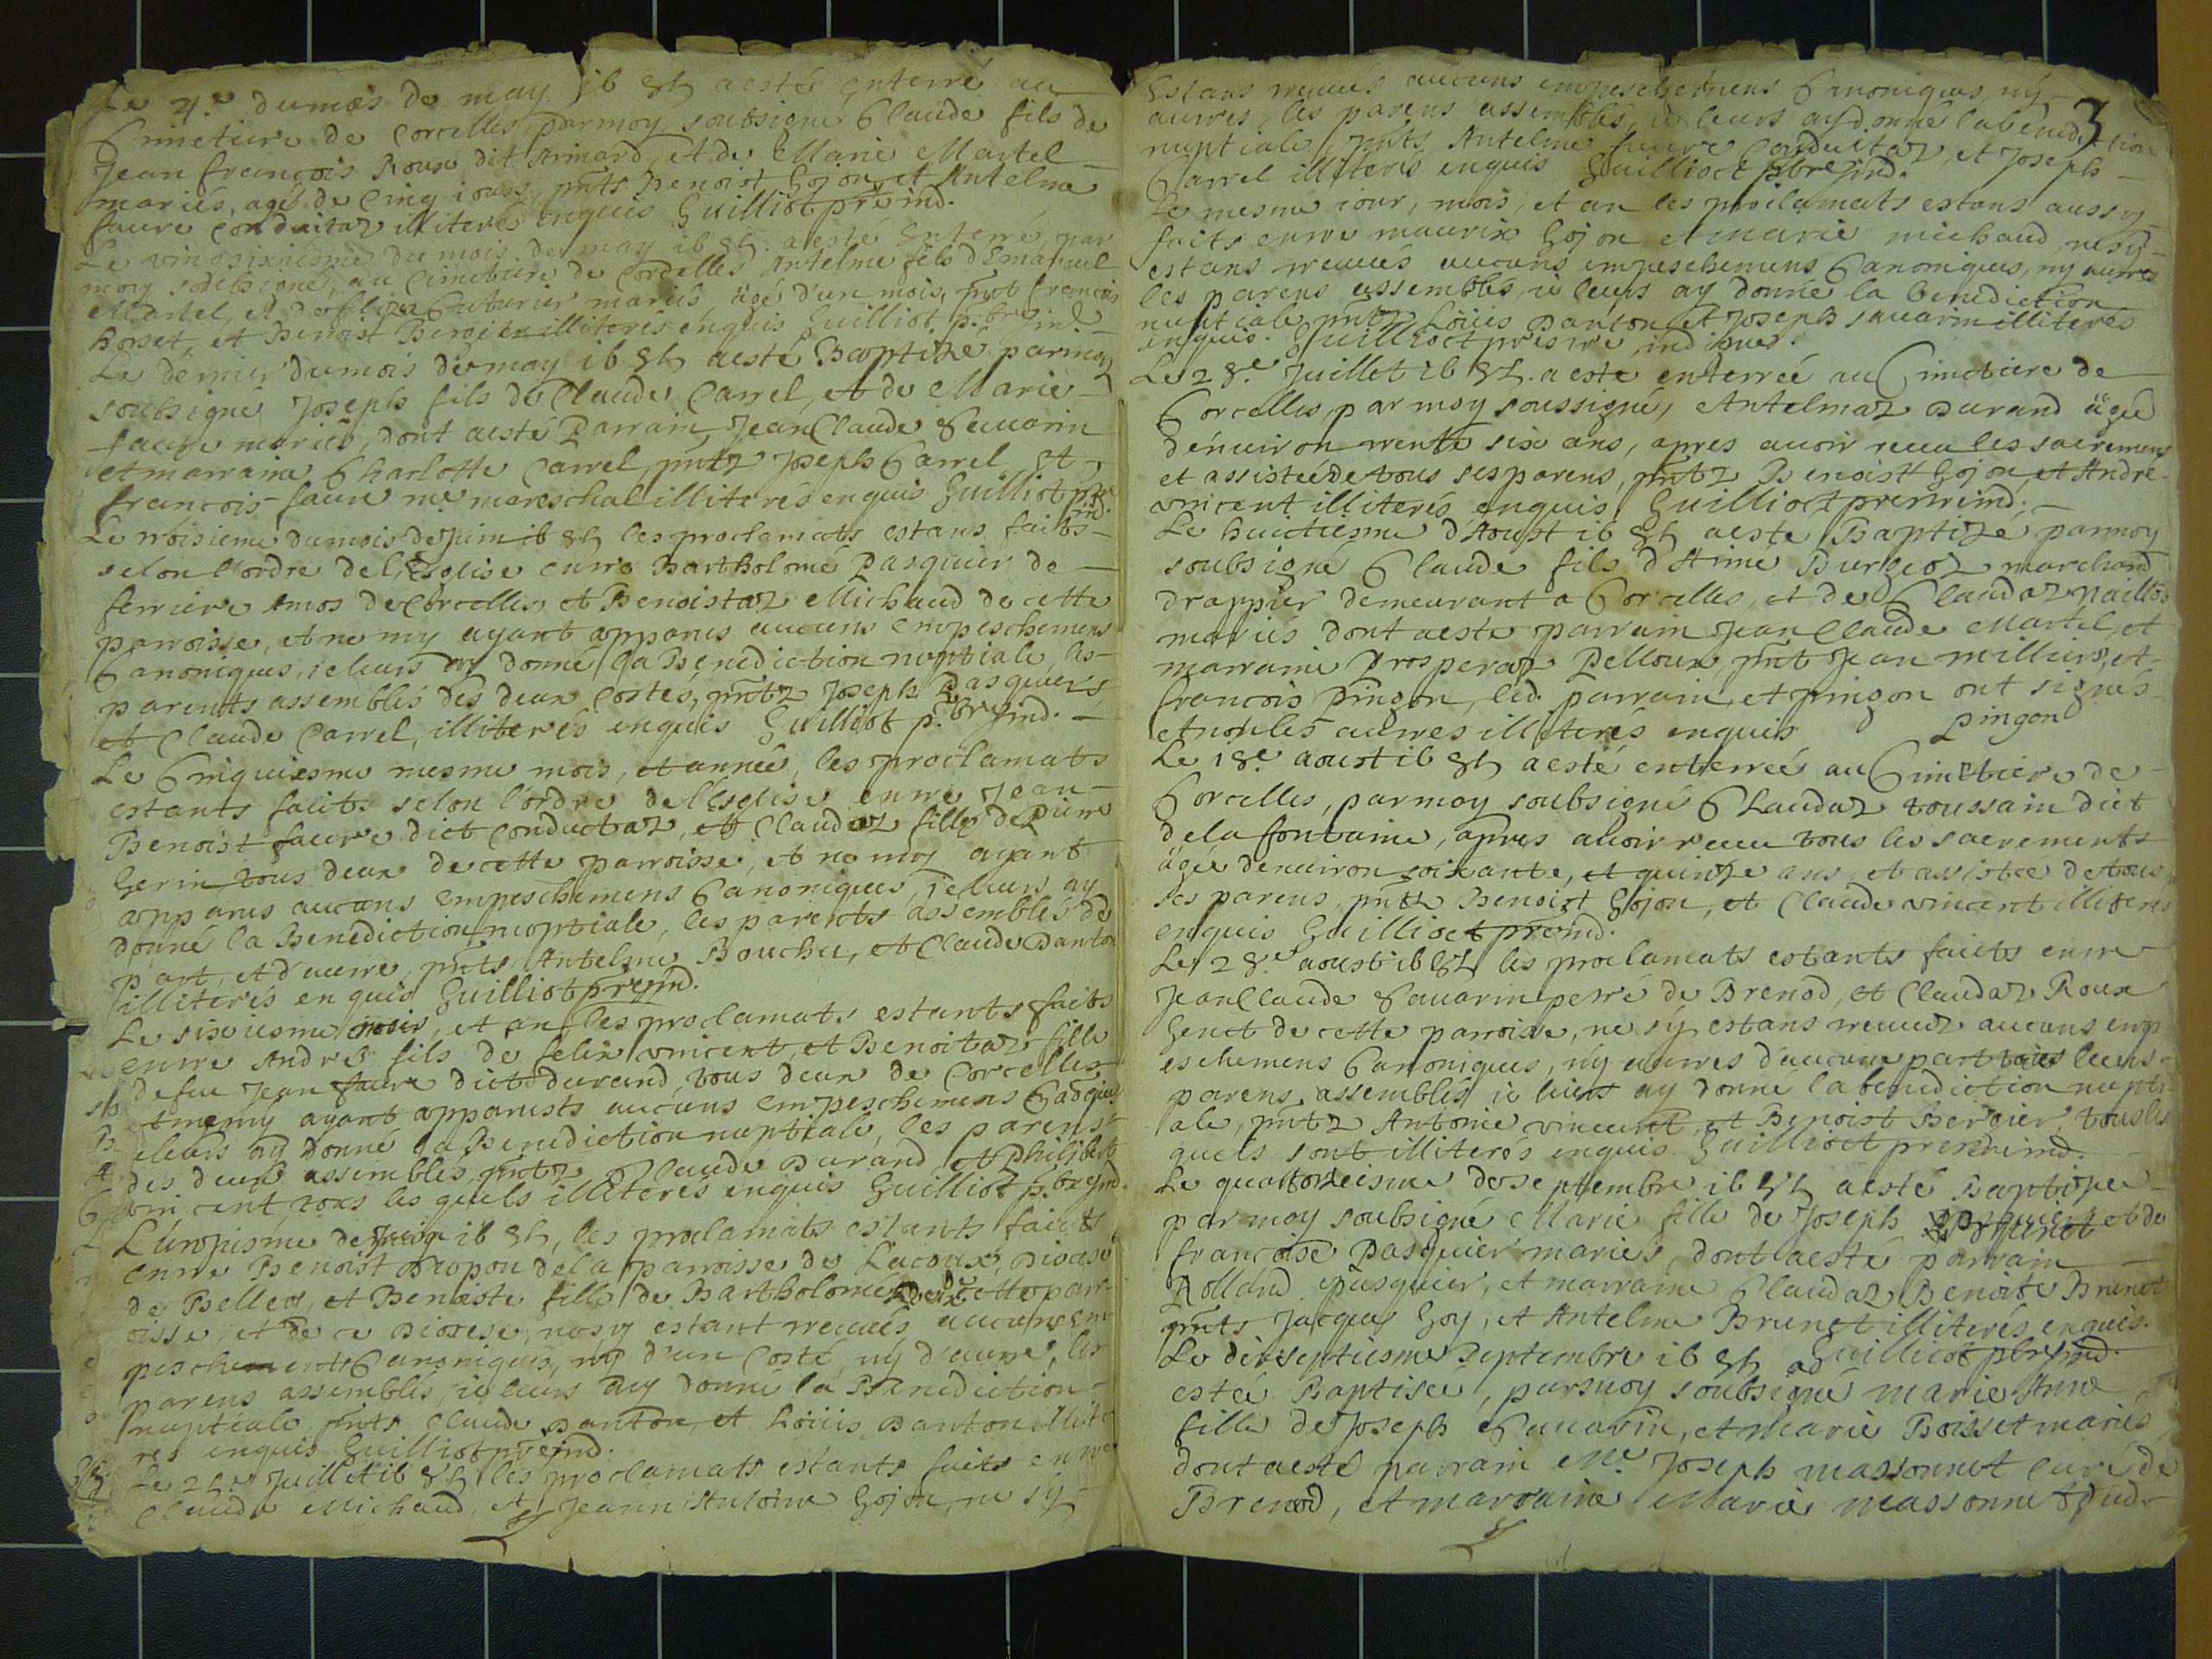 Le 4.e du mois de may 16 84 a esté enterré au
Cimetiere de Corcelles par moy soubsigné Claude fils de
Jean françois Roux dit Armard, et de Marie Martel
mariés, agé de Cinq iours, pnts Benoist Gojon et Antelme
faure Conduitaz illiterés enquis Guilliot pre ind.
Le vingsixiesme du mois de may 16 84 a esté Enterré, par
moy soubsigné, au Cimetiere de Corcelles Antelme fils d'Emanuel
Martel, et de Couturier mariés âgé d'un mois, pnt françois
Borset, et Benoist Bergier illiterés enquis Guilliot p.bre ind.
Le dernier du mois de may 16 84 a esté Baptizé par moy
soubsigné Joseph fils de Claude Carrel, et de Marie
faure mariés, dont a esté Parrain Jean Claude Sauarin
et marraine Charlotte Carrel, pntz Joseph Carrel et
françois faure me mareschal illiterés enquis Guilliot pbre
ind.
Le troisieme du mois de Juin 16 84 les proclamats estans faits
selon l'ordre de l'Esglise entre Bartholomé Pasquier de
ferriere de Corcelles, et Benoistaz Michaud de cette
parroisse, et ne m'y ayant apparus aucuns empeschemens
Canoniques, ie leurs ay donné la Benediction nuptiale, les
parents assemblés des deux Costés, pntz Joseph Pasquier
et Claude Carrel, illiterés enquis Guilliot p.bre ind.
Le Cinquiesme mesme mois, et année, les proclamats
estants faits selon l'ordre de l'Esglise entre Jean
Benoist faure dict Conductaz, et Claudaz fille de Pierre
Gerin tous deux de cette parroisse, et ne moy ayant
apparus aucuns empeschemens Canoniques, ie leurs ay
donné la Benediction nuptiale, les parents assemblés de
part, et d'autre, pnts Antelme Bouchu, et Claude Danton
illiterés enquis Guilliot pre ind.
Le sixiesme mois, et an les proclamats estants faits
entre André fils de felix vincent, et Benoitaz fille
de feu Jean faure dict durand, tous deux de Corcelles
et ne m'y ayant apparusts aucuns empeschemens
leurs ay donné la Benediction nuptiale, les parens
des deux assemblés, pntz Claude Durand, et Philibert
vincent, tous les quels illiterés enquis Guilliot p.bre ind.
L'unziesme de Juin 16 84, les proclamats estants faicts
entre Benoist de la parroisse de Lacoux, Diocese
de Belley, et Benoiste fille de Bartholomé de cette parr
oisse, et de ce Diocese, ne s'y estant treuués aucuns em
peschements Canoniques, ny d'un Costé, ny d'autre, les
parens assemblés, ie leurs ay donné la Benediction
nuptiale, pnts Claude Danton, et Loüis Danton illite
rés enquis Guilliot pre ind.
Le Juillet 16 84 les proclamats estants faits entre
Claude Michaud, et Jeann Antoine Gojon, ne s'y
3
Estans treuués aucuns empeschemens Canoniques, ny
autres, les parens assemblés, ie leurs ay donné la benediction
nuptiale, pnts Antelme faure Conduitaz et Joseph
Carrel illiterés enquis Guillioct pbre ind.
Le mesme iour, mois, et an les proclamats estans aussy
faits entre maurix Gojon et marie michaud, ne s'y
estans treuués aucuns empeschemens Canoniques, ny autres
les parens assemblés, ie leurs ay donné la benediction
nuptiale pntz Loüis Danton et Joseph sauarin illiterés
enquis. Guillioct prestre indigne.
Le 28.e Juillet 16 84. a esté enterrée au Cimetiere de
Corcelles, par moy soussigné, Antelmaz Durand âgée
d'enuiron trente six ans, apres auoir receu les sacremens
et assistée de tous ses parens, pntz Benoist Gojon, et André
vincent illiterés enquis Guillioct prestre ind.
Le huictiesme d'Aoust 16 84 a esté Baptizé par moy
soubsigné Claude fils d'Aimé Burgeoz marchand
drappier demeurant a Corcelles, et de Claudaz
mariés dont a esté parrain Jean Claude Martel, et
marraine Prosperaz Pelloux, pnt Jean milliers, et
françois Pingon, led. parrain, et pingon ont signés
et non les autres illiterés enquis Pingon
Le 18.e aoust 16 84 a esté enterrée au Cimetiere de
Corcelles, par moy soubsigné Claudaz toussain dict
de la fontaine, apres auoir receu tous les sacrements
âgée d'enuiron soixante, et quinze ans, et assistée de tous
ses parens, pntz Benoist Gojon, et Claude vincent illiterés
enquis Guillioct pre ind.
Le 28.e aoust 16 84 les proclamats estants faicts entre
Jean Claude Sauarin de Brenod, et Claudaz Roux
Genet de cette parroisse, ne s'y estans treuuez aucuns emp
eschemens Canoniques, n'y autres d'aucune part leurs
parens assemblés ie leurs ay donné la benediction nupti
ale, pntz Antoine vincent, et Benoist Bergier, tous les
quels sont illiterés enquis Guillioct prestre ind.
Le quatorziesme de septembre 16 84 a esté Baptizée
par moy soubsigné Marie fille de Joseph et de
françoise Pasquier mariés, dont a esté parrain
Rolland Pasquier, et marraine Claudaz Benoite Brunet
pnts Jacques Goy, et Antelme Brunet illiterés enquis.
Guillioct pbre ind.
Le dixseptiesme Septembre 16 84 a
estée Baptisée, par moy soubsigné marie Anne
fille de Joseph Sauarin, et Marie Boisset mariés,
dont a esté parrain Me. Joseph massonnet Curé de
Brenod, et marraine Marie massonnet dud.